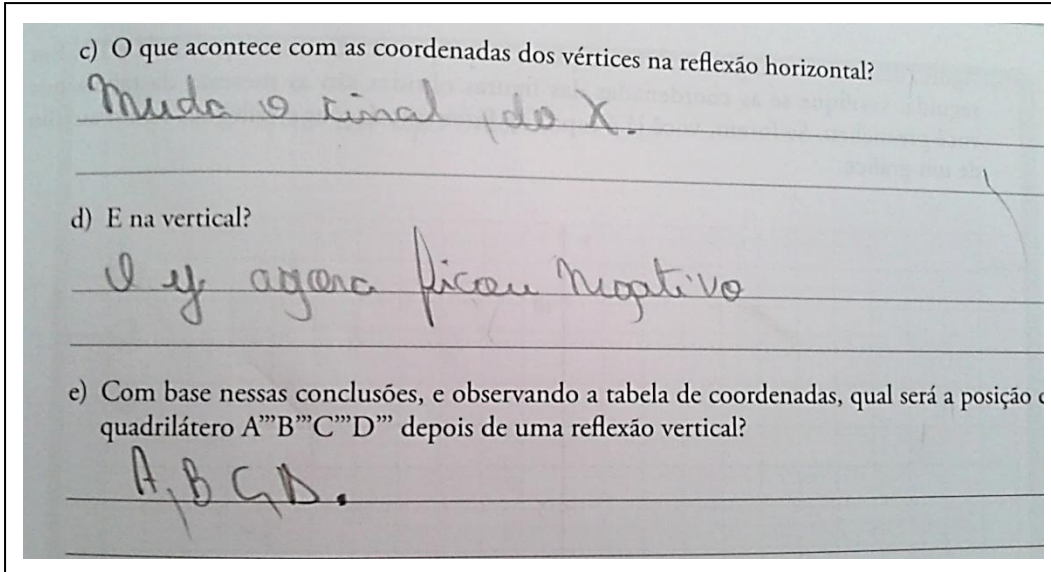 c) O que acontece com as coordenadas dos vértices na reflexão horizontal?
Muda o sinal do X.
d) E na vertical?
O y agora ficou negativo
e) Com base nessas conclusões, e observando a tabela de coordenadas, qual será a posição
quadrilátero A’’’B’’’C’’’D’’’ depois de uma reflexão vertical?
A, B C, D.